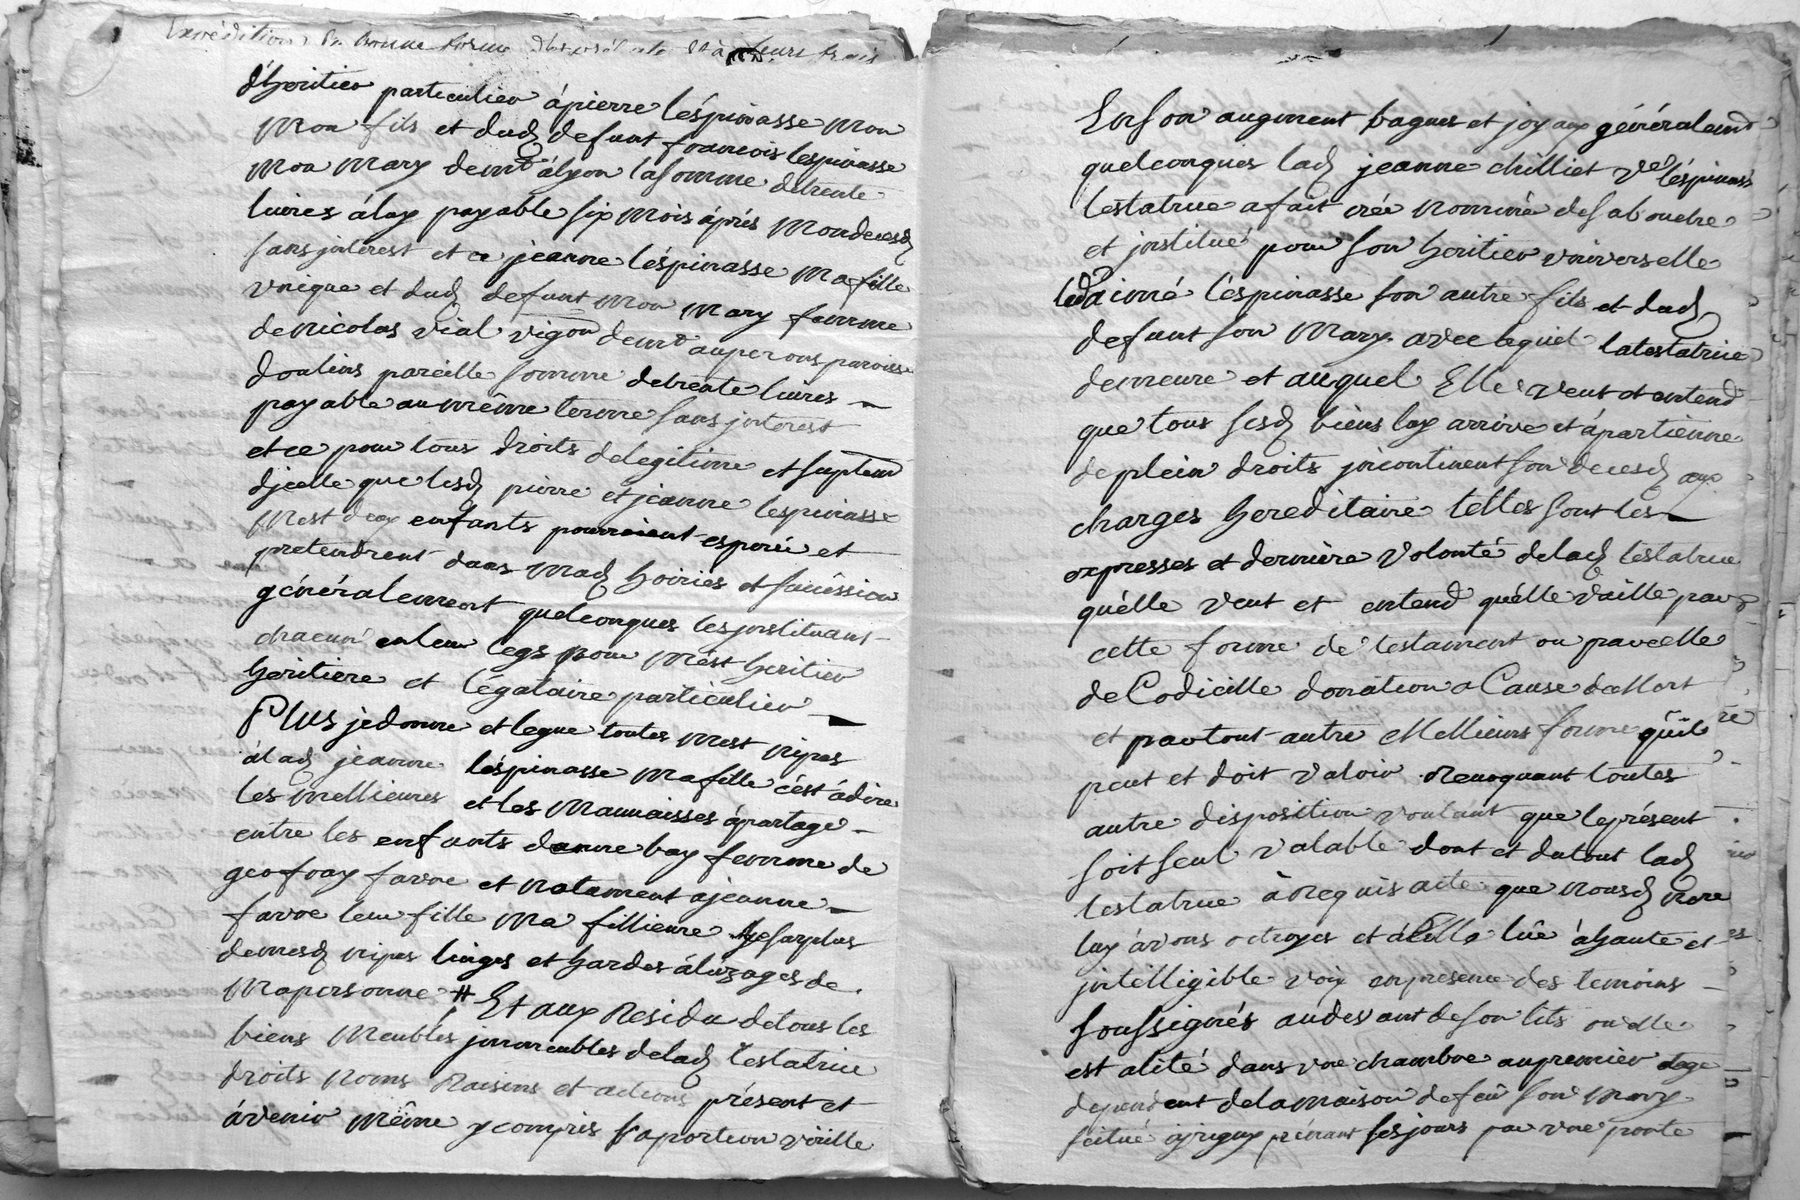 Expédition En bonne forme à leurs frais
d'heritier particulier à pierre l'éspinasse mon
Mon fils et dud defunt francois lespinasse
Mon Mary demt àlyon la somme de trente
livres àluy payable six mois àprés mon decesd
sans jnterest et a jeanne l'éspinasse Ma fille
vnique et dud defunt mon Mary femme
de nicolas vial vigon demt aux perons paroisse
doulins pareille somme de trente livres
payable au même terme sans jnterest
et ce pour tous droits de legitime et suplem
d'jcelle que lesd pierre et jeanne lespinasse
Mest deux enfants pourroient esperée et
pretendrent dans Mad hoiries et sucêssion
généralement quelconques les jnstituant
chacun en leur legs pour mést heritier
heritiere et légataire particulier
Plus je donne et legue toutes mest nipes
àlad jeanne léspinasse ma fille c'ést àdire
les mellieures et les Mauvaisses àpartage
entre les enfants danne bay femme de
geofray favre et notament a jeanne
favre leur fille Ma fillieure le surplus
de mesd nipes linges et hardes àluzages de
Ma personne # Et aux Residu de tous les
biens Meubles jmmeubles delad testatrice
droits noms Raisons et actions présent et
àvenir même y compris saportion virille
En son augment bagues et joyaux généralemt
quelconques lad jeanne chilliet vve léspinass
testatrice a fait créé nommé de sa bouche
et jnstitué pour son heritier vniverselle
led aimé l'éspinasse son autre fils et dud
defunt son Mary avec lequel la testatrice
demeure et auquel Elle veut et entend
que tous sesd biens luy arrive et àpartienne
de plein droits jncontinent son decesd aux
charges hereditaire telles sont les
expresses et dernière volonté delad testatrice
qu'élle veut et entend qu'élle vaille par
cette forme de testament ou par celle
de Codicille donation a Cause de Mort
et par tout autre Mellieurs forme qu'il
peut et doit valoir Revoquant toutes
autre disposition voulant que le présent
soit seul valable dont et du tout lad
testatrice à Requis acte que nousd nore
luy àvons octroyes et à Elle lüe àhaute et
jntelligible voix en presence des temoins
soussignés au devant de son lits ou elle
est alité dans vne chambre au premier etage
dependent de la maison de feü son Mary
scitué prénant ses jours par vne porte